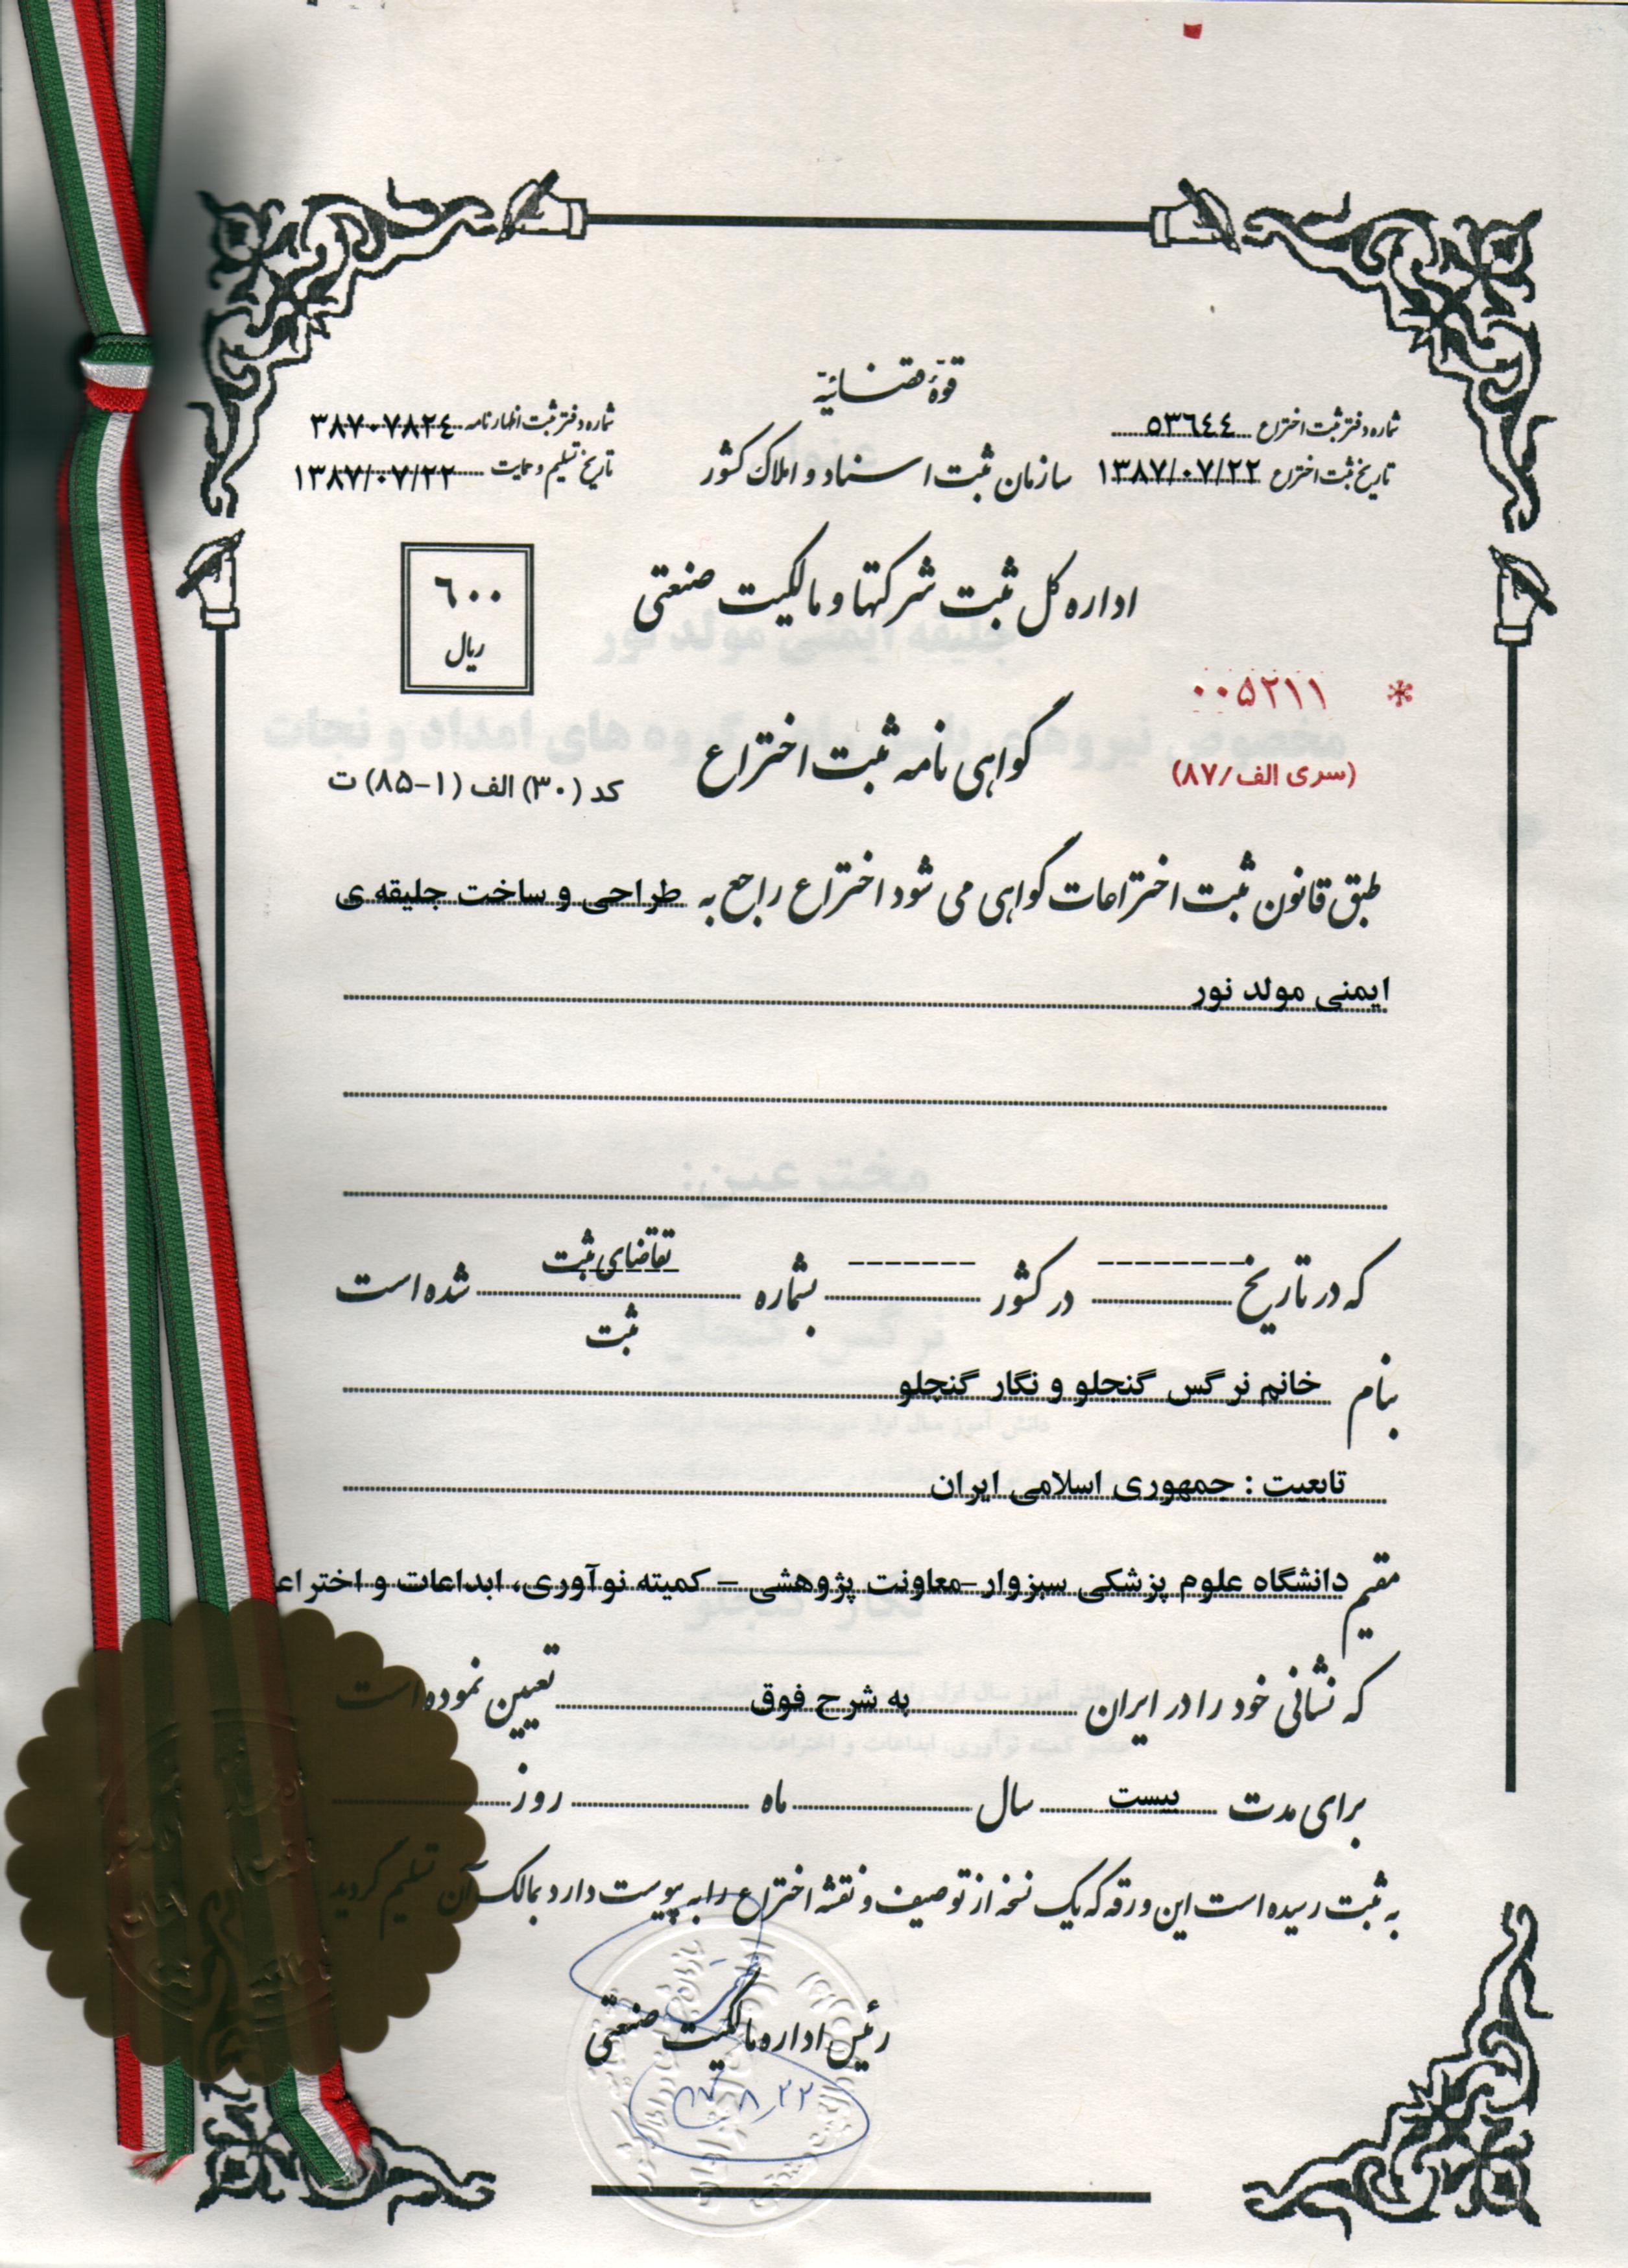 قوۀ قضائیه
شماره دفتر ثبت اختراع ٥٣٦٤٤
شماره دفتر ثبت اظهارنامه ٣٨٧٠٧٨٢٤
سازمان ثبت اسناد و املاک کشور
تاریخ ثبت اختراع ١٣٨٧/٠٧/٢٢
تاریخ تسلیم و حمایت ١٣٨٧/٠٧/٢٢
اداره کل ثبت شرکتها و مالکیت صنعتی
٦٠٠
ریال
* ۰۰۵۲۱۱
(سری الف/۸۷)
گواهی نامه ثبت اختراع
کد (۳۰) الف (۱-۸۵) ت
طبق قانون ثبت اختراعات گواهی می شود اختراع راجع به طراحی و ساخت جلیقه ی
ایمنی مولد نور
که در تاریخ -------- در کشور ------- بشماره تقاضای ثبت شده است
ثبت
بنام خانم نرگس گنجلو و نگار گنچلو
تابعیت : جمهوری اسلامی ایران
مقیم دانشگاه علوم پزشکی سبزوار-معاونت پژوهشی - کمیته نوآوری، ابداعات و اختراع
که نشانی خود را در ایران به شرح فوق تعیین نموده است
برای مدت بیست سال ماه روز
به ثبت رسیده است این ورقه که یک نسخه از توصیف و نقشه اختراع را به پیوست دارد بمالک آن تسلیم گردید
رئیس اداره مالکیت صنعتی
۸۷ ۸ ۲۲